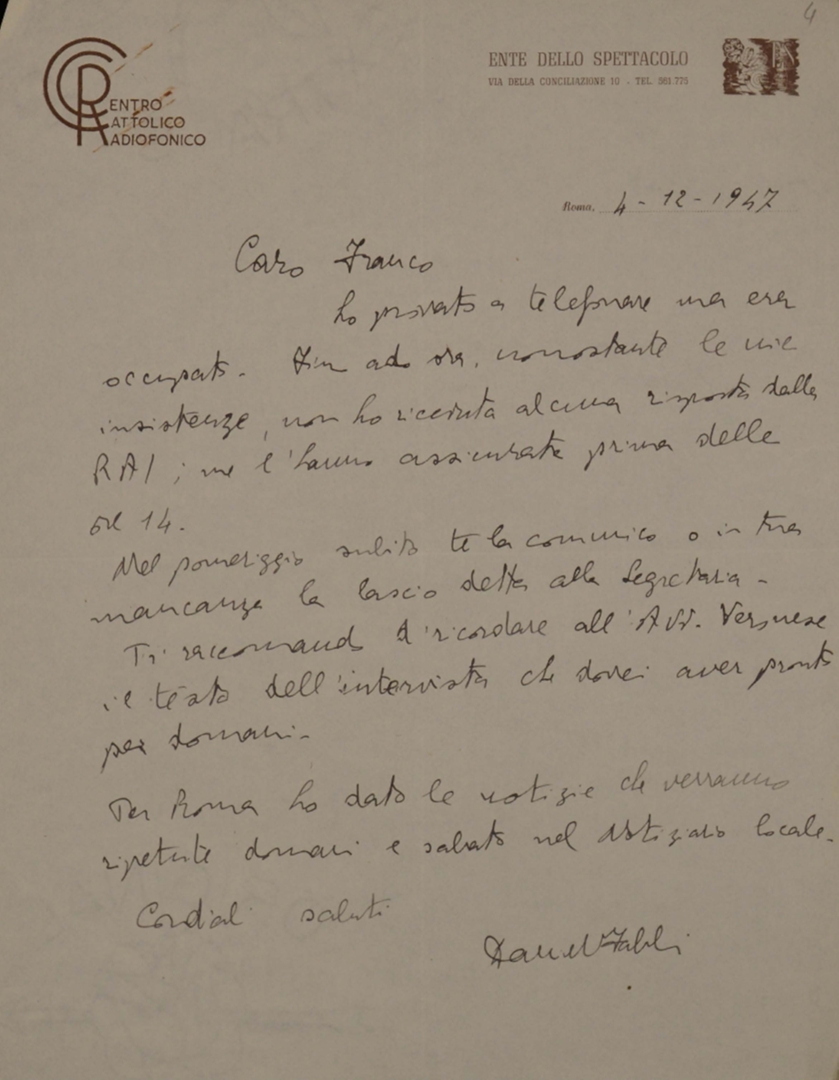 4
CENTRO
CATTOLICO
RADIOFONICO
ENTE DELLO SPETTACOLO
VIA DELLA CONCILIAZIONE 10 - TEL. 561 775
Roma, 4-12-1947
Caro Franco
ho provato a telefonare ma era
occupato. Fin ad ora, nonostante le mie
insistenze, non ho ricevuta alcuna risposta dalla
RAI; me l'hanno assicurata prima delle
ore 14.
Nel pomeriggio subito te la comunico o in tua
mancanza la lascio detta alla Segretaria -
Ti raccomando di ricordare all'Avv. Veronese
il testo dell'intervista che dovrei aver pronto
per domani -
Per Roma ho dato le notizie che verranno
ripetute domani e sabato nel Notiziario locale.
Cordiali saluti